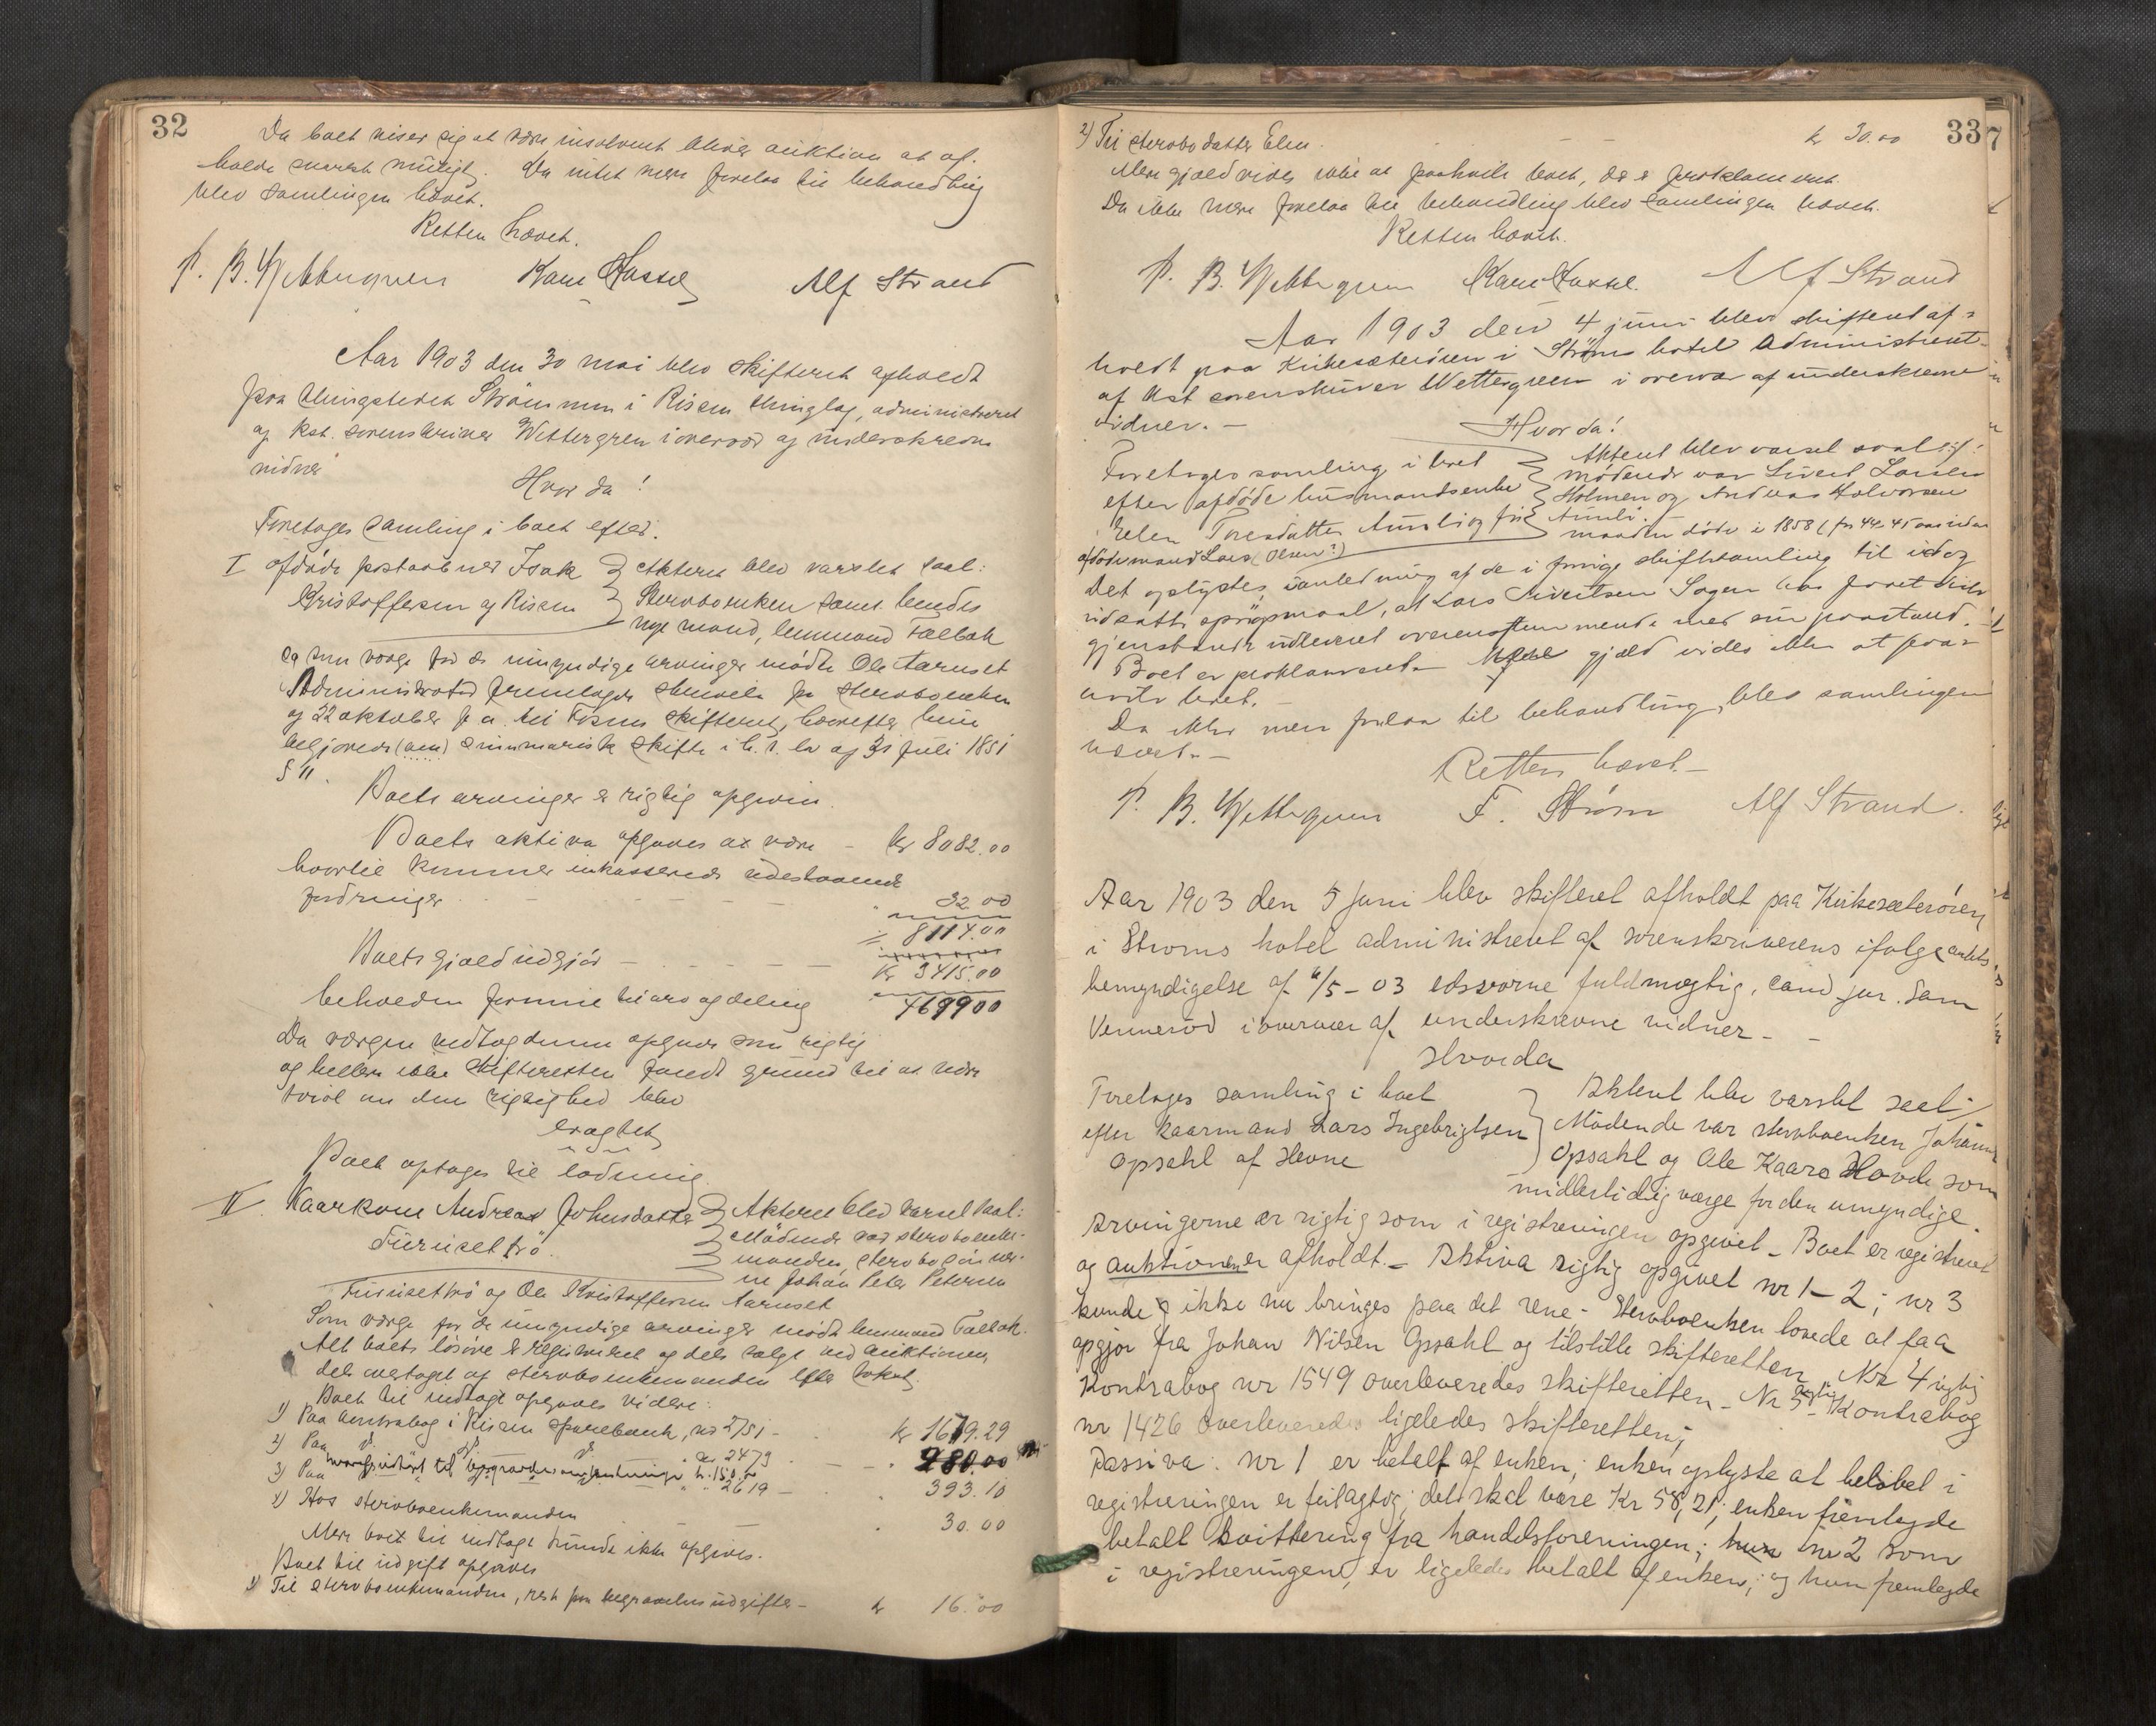 32
Da boet viser sig at være insolvent bliver auktion at af-
holde snarest muligt. Da intet mere forelaa til behandling
blev samlingen hævet.
Retten hævet.
P. B. Wettergreen Karl Hassel Alf Strand
Aar 1903 den 30 mai blev skifteret afholdt
paa thingstedet Strømmen i Risen thinglag, administreret
af kst. sorenskriver Wettergren i overvær af underskrevne
vidner
Hvorda!
Foretoges samling i boet efter:
I afdøde postaabner Isak
Kristoffersen af Risen
Akteret blev varslet saal:
Sterboenken samt hendes
nye mand, lensmand Falbak
og som værge for de umyndige arvinger mødte Ole Aarnset
Administrator fremlagde skrivelse fra sterboenken
af 22 oktober f. a. til Fosens skifteret, hvorefter hun
begjærede (em) summarisk skifte i h. t. lov af 31 Juli 1851
§ 11.
Boets arvinger er rigtig opgiven.
Boets aktiva opgaves at være - kr 8082.00
hvortil kommer inkasserede udestaaende
fordringer - - - - " 32.00
= 8114.00
Boets gjæld udgjør - - - - kr 3415.00
beholden formue til arv og deling 4699 00
Da værgen vedtog denne opgave som rigtig
og heller ikke skifteretten fandt grund til at nære
tvivl om den rigtighed blev
eragtet
Boet optages til lodning
II. Kaarkone Andrea Johnsdatter
Furusettrø.
Akteret blev varslet saal:
Mødende var sterboenke-
manden, sterbosønner-
ne Johan Peter Petersen
Furusettrø og Ole Kristoffersen Aarnset
Som værge for de umyndige arvinger mødte lensmand Falbak.
Alt boets løsøre er registreret og dels solgt ved auktionen,
dels overtaget af sterboenkemanden efter takst.
Boet til indtægt opgaves videre:
1) Paa kontrabog i Risen sparebank, no 2751 - kr 1619.29
2) Paa d° d° d° No 2479 - - " 280.00
3) Paa " " " " 2619 - " 393.10
4) Hos sterboenkemanden - - " 30.00
Mere boet til indtægt kunde ikke opgives.
Boet til udgift opgaves
1) Til sterboenkemanden, rest paa begravelsesudgifter - kr 16.00
337
2) Til sterbodatter Elen - - kr 30.00
Mere gjæld vides ikke at paahvile boet, der er proklameret.
Da ikke mere forelaa til behandling blev samlingen hævet.
Retten hævet.
P. B. Wettergreen Karl Hassel. Alf Strand
Aar 1903 den 4 juni blev skifteret af-
holdt paa Kirkesæterøren i Strøms hotel administreret
af kst sorenskriver Wettergreen i overvær af underskrevne
vidner. -
Hvorda!
Foretoges samling i boet
efter afdøde husmandsenke
Elen Toresdatter Aunli og før
afdøde mand Lars (Olsen?)
Aktent blev varsel saal:
mødende var Sivert Larsen
Holmen og Andreas Halvorsen
Aunli.
manden døde i 1858 (for 44-45 aar siden
Det oplystes, i anledning af de i forrige skiftesamling til idag
udsatte spørgsmaal, at Lars Sivertsen Sagen har faaet sine
gjenstande udleveret overensstemmende med sin paastand.
Boet er proklameret. gjæld vides ikke at paa-
hvile boet. -
Da ikke mere forelaa til behandling, blev samlingen
hævet. -
Retten hævet. -
P. B. Wettergreen F. Strøm Alf Strand.
Aar 1903 den 5 juni blev skifteret afholdt paa Kirkesæterøren
i Strøms hotel administreret af sorenskriverens ifølge amts
bemyndigelse af 6/5 - 03 edsvorne fuldmægtig, cand jur. Sam
Vennerød i overvær af underskrevne vidner - -
Hvorda
Foretoges samling i boet
efter Kaarmand Lars Ingebrigtsen
Opsahl af Hevne
Aktent blev varslet saal:
Mødende var sterboenken Johanna
Opsahl og Ole Kaare Hovde som
midlertidig værge for den umyndige.
Arvingerne er rigtig som i registreringen opgivet - Boet er registreret
og auktionen er afholdt. - Aktiva rigtig opgivet nr 1-2; nr 3
kunde ikke nu bringes paa det rene; - Sterboenken lovede at faa
opgjør fra Johan Nilsen Opsahl og tilstille skifteretten. Nr 4 rigtig
Kontrabog nr 1549 overleveredes skifteretten - Nr 5 rigtig - Kontrabog
nr 1426 overleveredes ligeledes skifteretten;
Passiva: nr 1 er betalt af enken; enken oplyste at beløbet i
registreringen er feilagtig; det skal være Kr 58,21; enken fremlagde
betalt kvittering fra handelsforeningen; nr 2 som
i registreringen, er ligeledes betalt af enken; og hun fremlagde